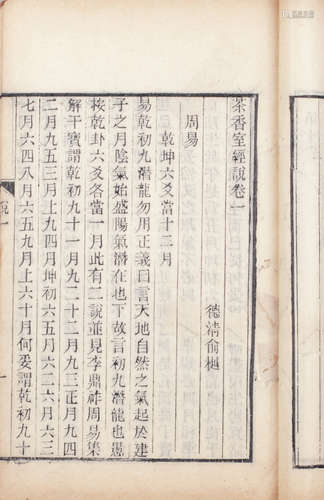 茶香室經說卷一
德清俞樾
周易
乾坤六爻當十二月
易乾初九潛龍勿用正義曰言天地自然之氣起於建
子之月陰氣始盛陽氣潛在地下故言初九潛龍也愚
按乾卦六爻各當一月此有二說並見李鼎祚周易集
解干寶謂乾初九十一月九二十二月九三正月九四
二月九五三月上九四月坤初六五月六二六月六三
七月六四八月六五九月上六十月何妥謂乾初九十
說一